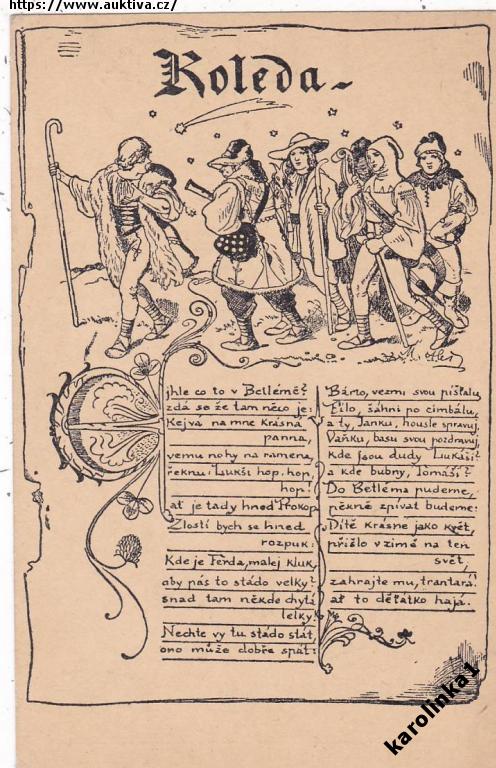 https://www.auktiva.cz/
Koleda
Ejhle co to v Betlémě?
zdá se že tam něco je:
Kejvá na mne krásná
panna,
vemu nohy na ramena,
řeknu: Lukši hop, hop,
hop!
ať je tady hned Prokop
Zlostí bych se hned
rozpuk:
Kde je Ferda, malej kluk,
aby pás to stádo velký?
snad tam někde chytá
lelky!
Nechte vy tu stádo stát,
ono může dobře spát:
Bárto, vezmi svou píšťalu,
Fílo, šáhni po cimbálu,
a ty, Janku, housle spravuj,
Vaňku, basu svou pozdravuj,
kde jsou dudy Lukáši?
a kde bubny, Tomáši?
Do Betléma pudeme,
pěkně zpívat budeme:
Dítě krásné jako květ,
přišlo v zimě na ten
svět,
zahrajte mu, trantará!
ať to děťátko hajá.
karolinka1